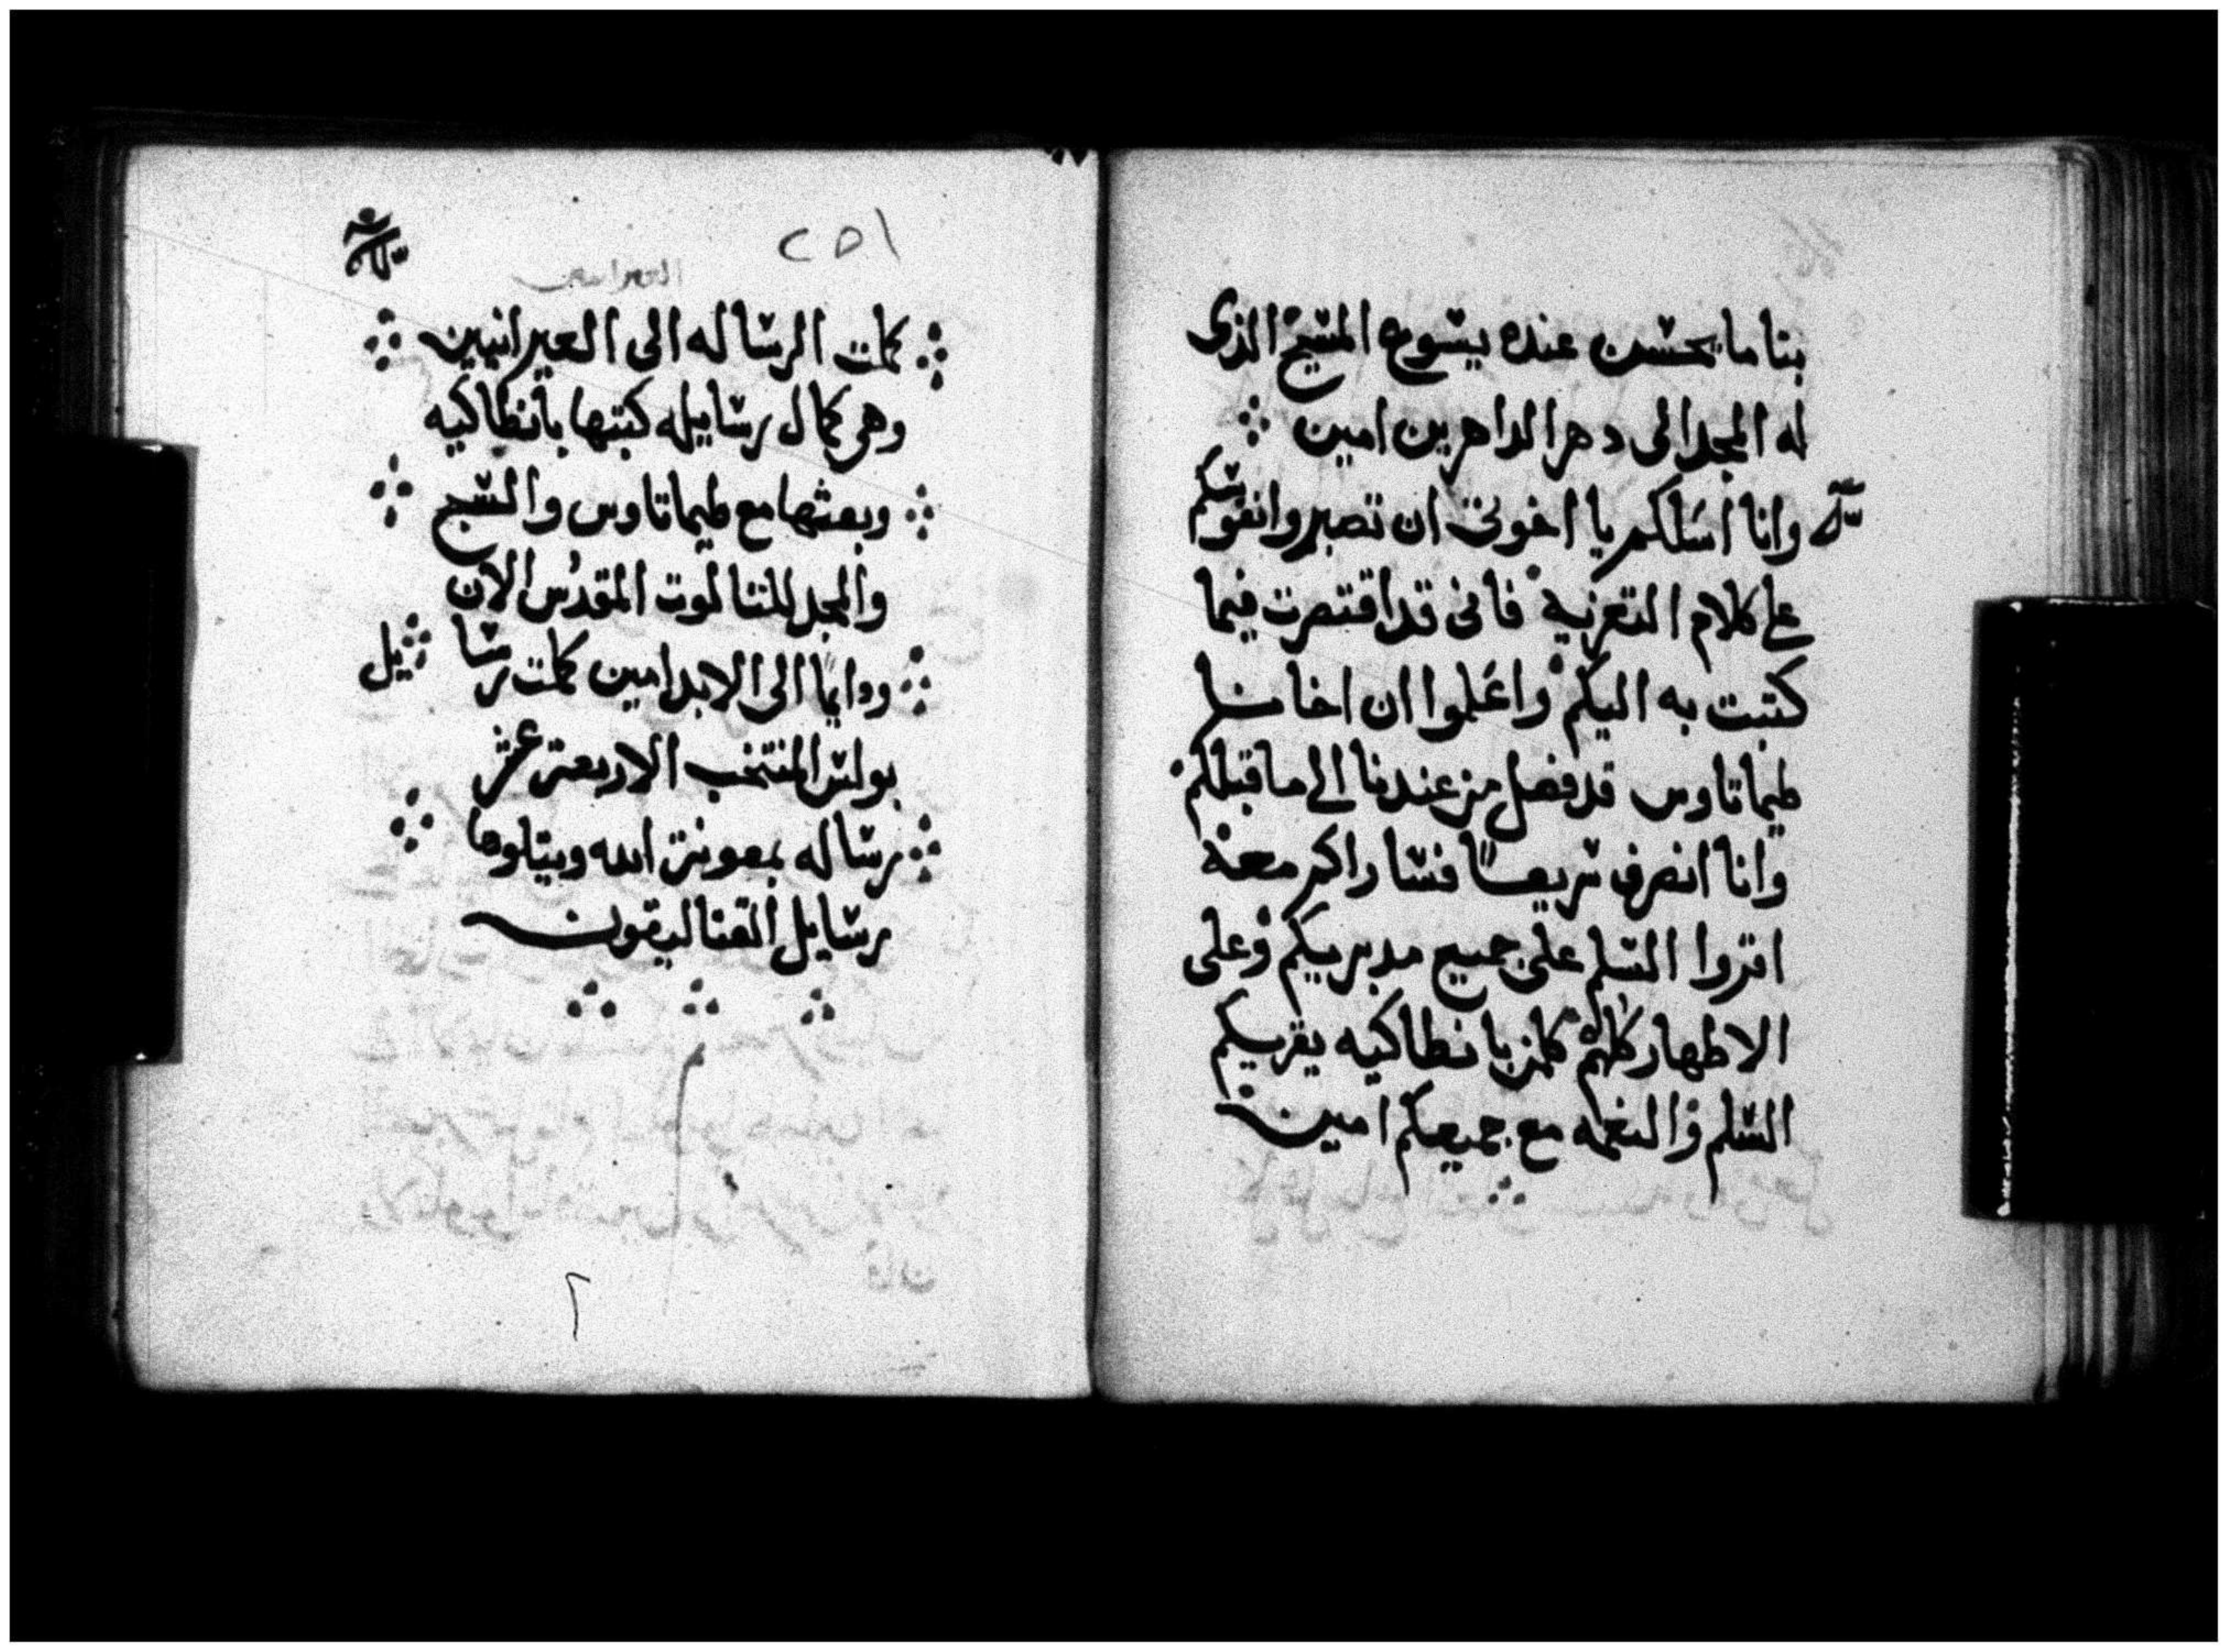 بنا ما يحسن عنده يسوع المسيح الذى
له المجد الى دهر الداهرين امين
وانا اسلكم يا اخوتى ان تصبروا انفوسكم
على كلام التعزيه فانى قد اقتصرت فيما
كتبت به اليكم واعلموا ان اخانا
طيماتاوس قد فصل من عندنا الى ما قبلكم
وانا انصرف سريعًا فساراكم معه
اقروا السلم على جميع مدبريكم وعلى
الاطهار كلهم كلمن بانطاكيه يقريكم
السلم والنعمه مع جميعكم امين
٢٥١
كملت الرساله الى العبرانيين
وهى كمال رسايله كتبها بانطاكيه
وبعثها مع طيماتاوس والسبح
والمجد للتالوت المقدس الان
ودايما الى الابد امين كملت رسايل
بولس المنتخب الاربعة عشر
رساله بمعونة الله ويتلوها
رسايل القتاليقون